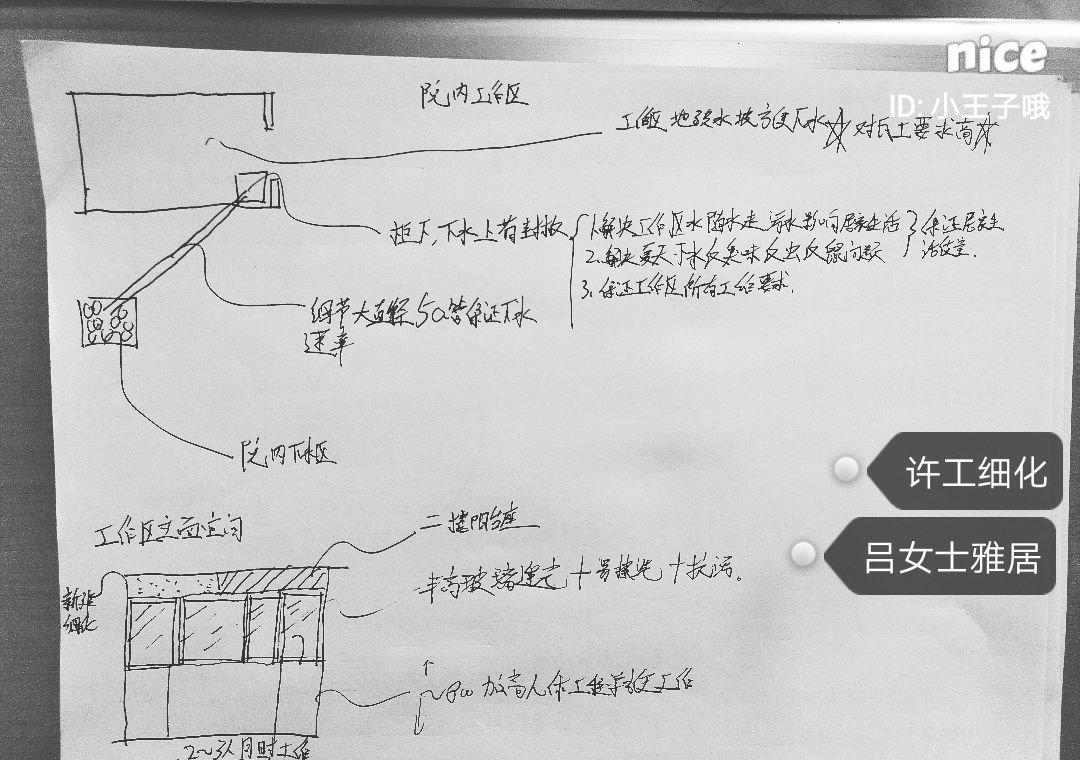 nice
ID: 小王子哦
院内工作区
工作区地砖水坡方便下水☆对瓦工要求高☆
柜下,下水上有封板
1.解决工作区水随水走,污水影响居家生活
2.解决夏天下水反臭味反虫反鼠问题
3.保证工作区所有工作要求.
保证居家生
活质量.
细节大直径50管保证下水
速率
院内下水区
许工细化
工作区立面空间
二楼阳台座
吕女士雅居
半高玻璃 + 易 + 抗污。
新建
细化
~800 加高人体工程学 工作
2~3人同时工作